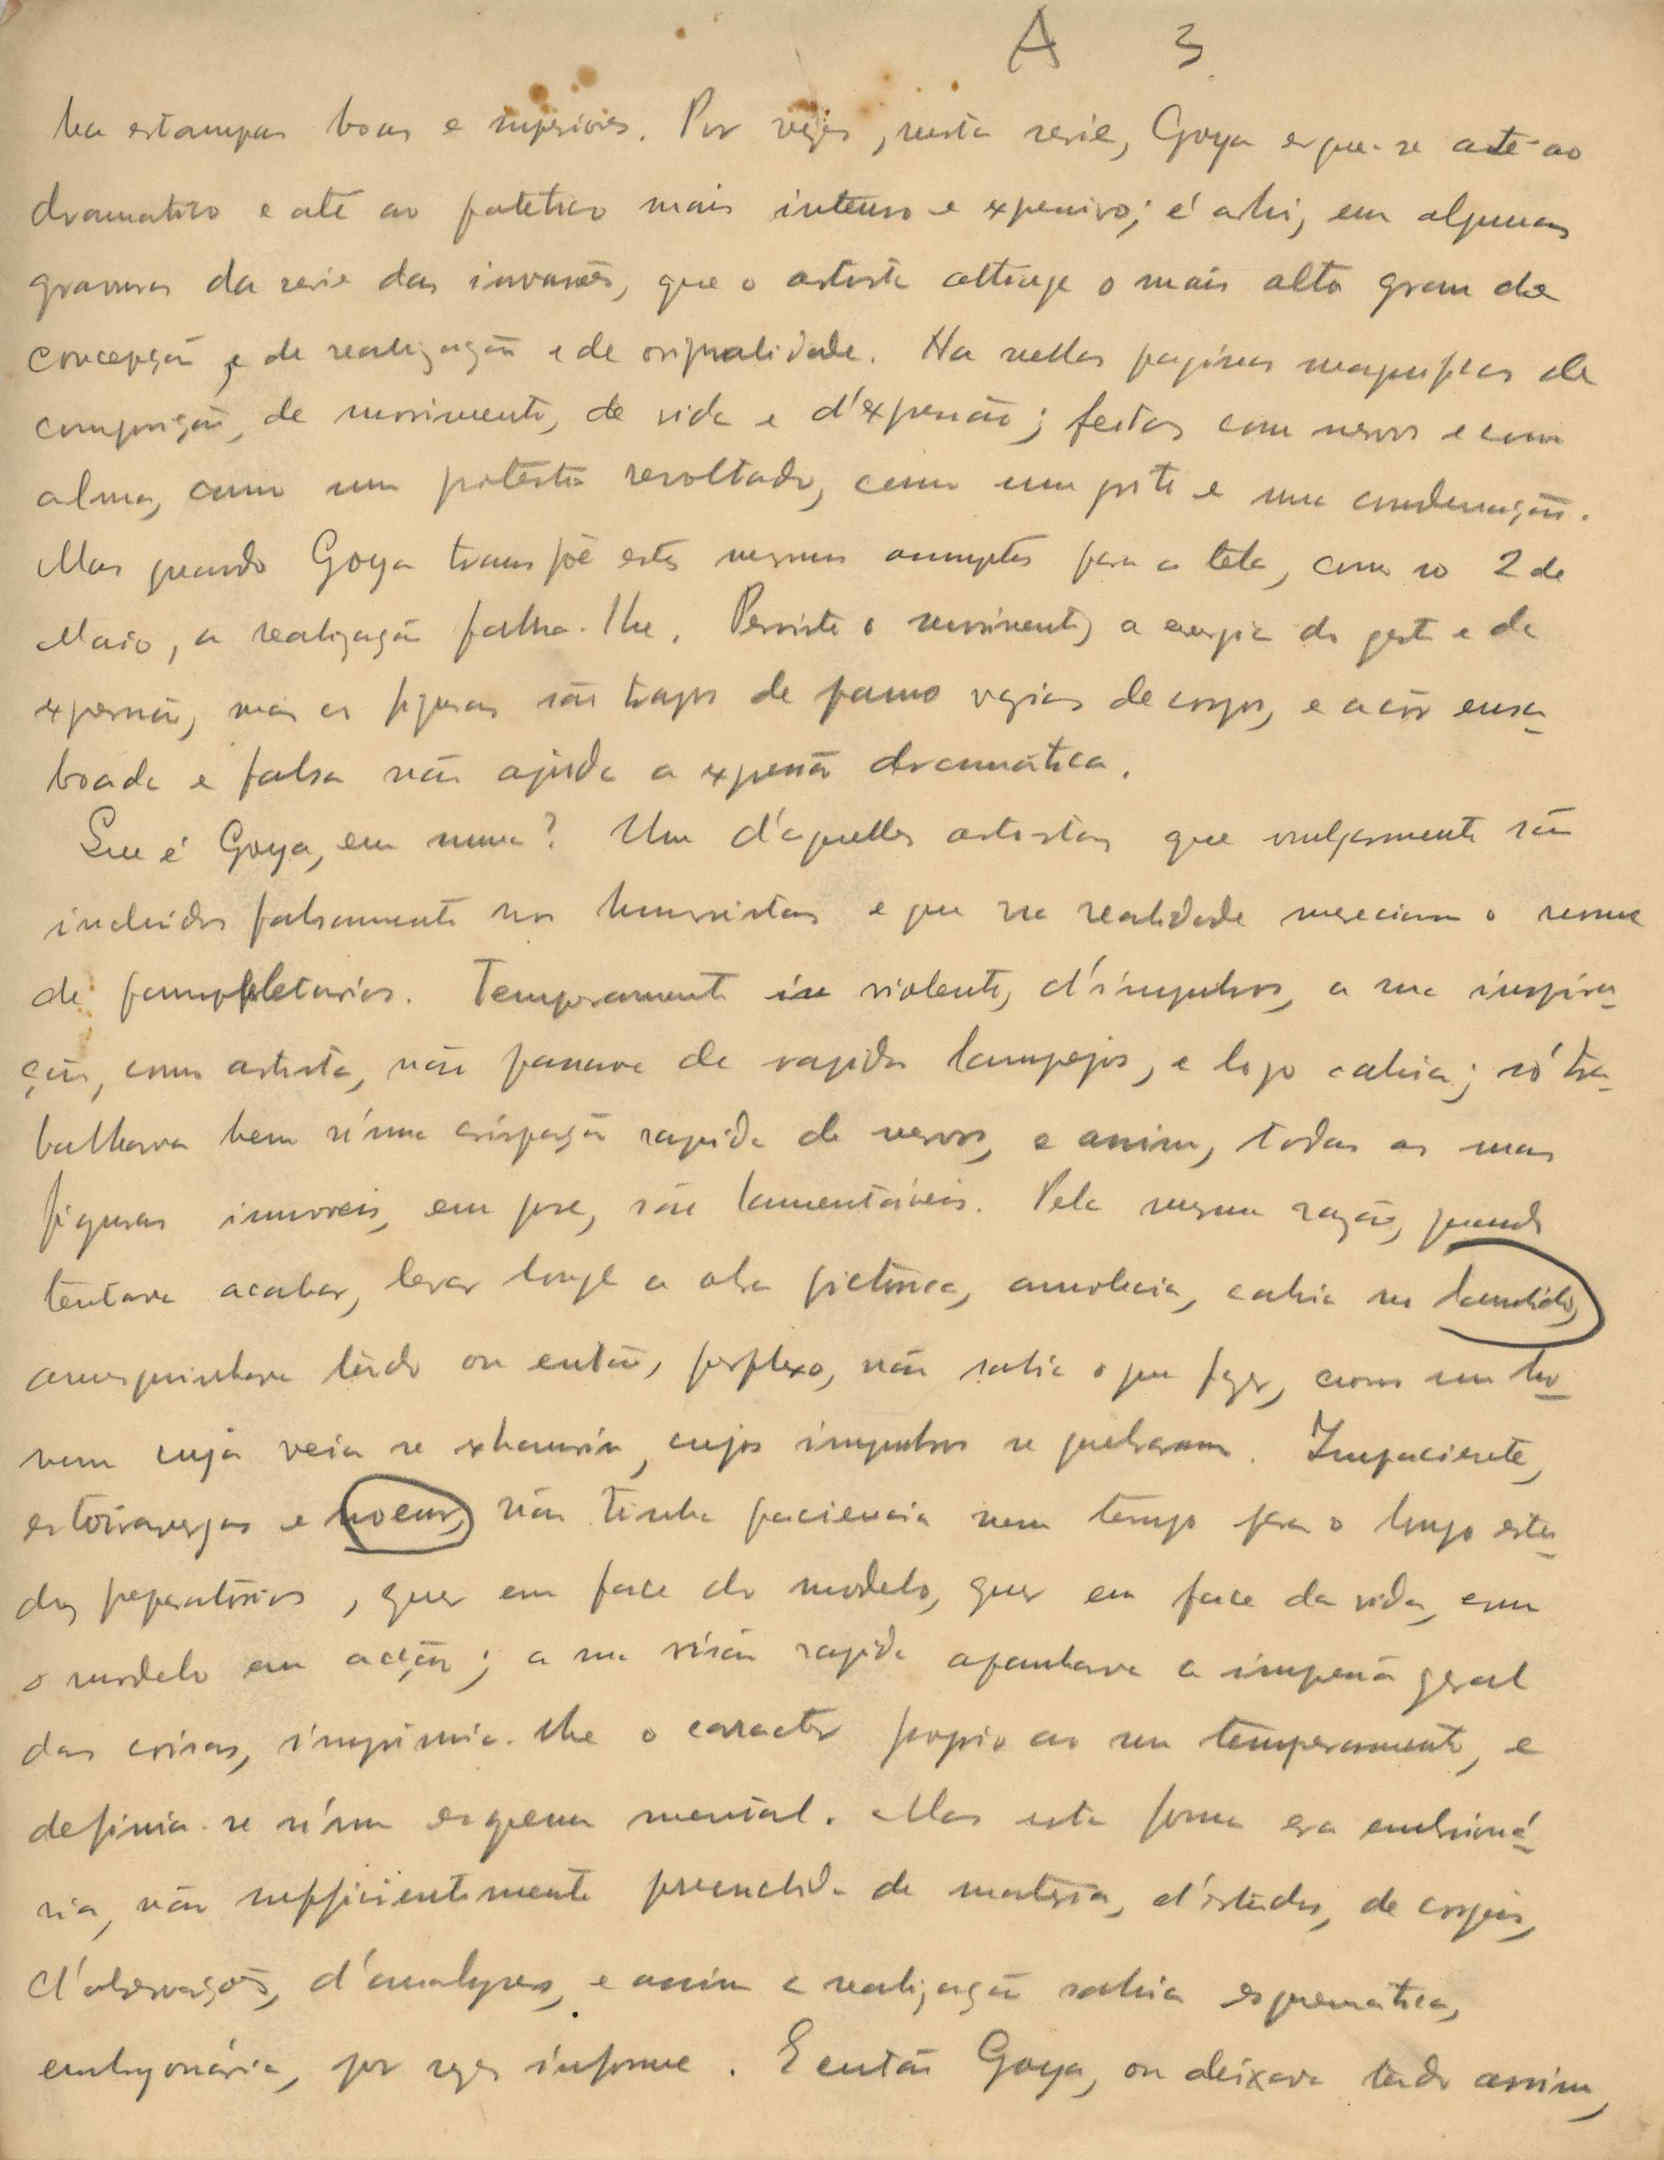 A 3
ha estampas boas e superiores. Por vezes, nesta serie, Goya ergue-se até ao
dramatico e até ao patetico mais intenso e expressivo; é ahi, em algumas
gravuras da serie das invasões, que o artista attinge o mais alto grau de
concepção e de realização e de originalidade. Ha nellas paginas magnificas de
composição, de movimento, de vida e d'expressão; feitas com nervos e com
alma, como um protesto revoltado, como um grito e uma condemnação.
Mas quando Goya transpõe estes mesmos assumptos para a tela, como no 2 de
Maio, a realização falha-lhe. Persiste o movimento, a energia do gesto e da
expressão, mas as figuras são trapos de panno vazios de corpo, e a côr ensa-
boada e falsa não ajuda a expressão dramática.
Que é Goya, em summa? Um d'aquelles artistas que vulgarmente são
incluidos falsamente nos humoristas e que na realidade mereciam o nome
de pamphletarios. Temperamento violento, d'impulsos, a sua inspira-
ção, como artista, não passava de rapidos lampejos, e logo cahia; só tra-
balhava bem n'uma crispação rapida de nervos, e assim, todas as suas
figuras immoveis, em pose, são lamentáveis. Pela mesma razão, quando
tentava acabar, levar longe a obra pictórica, amolecia, cahia no
amesquinhava tudo ou então, perplexo, não sabia o que fazer, como um ho-
mem cuja veia se exhauria, cujos impulsos se quebraram. Impaciente,
estoiravergas e não tinha paciencia nem tempo para o longo estu-
dos preparatórios, quer em face do modelo, quer em face da vida, com
o modelo em acção; a sua visão rapida apanhava a impressão geral
das coisas, imprimia-lhe o caracter proprio ao seu temperamento, e
definia-se n'um esquema mental. Mas esta forma era embrioná-
ria, não sufficientemente preenchida de materia, d'estudos, de copias,
d'observações, d'analyses, e assim a realização sahia esquemática,
embryonária, por vezes informe. E então Goya, ou deixava tudo assim,